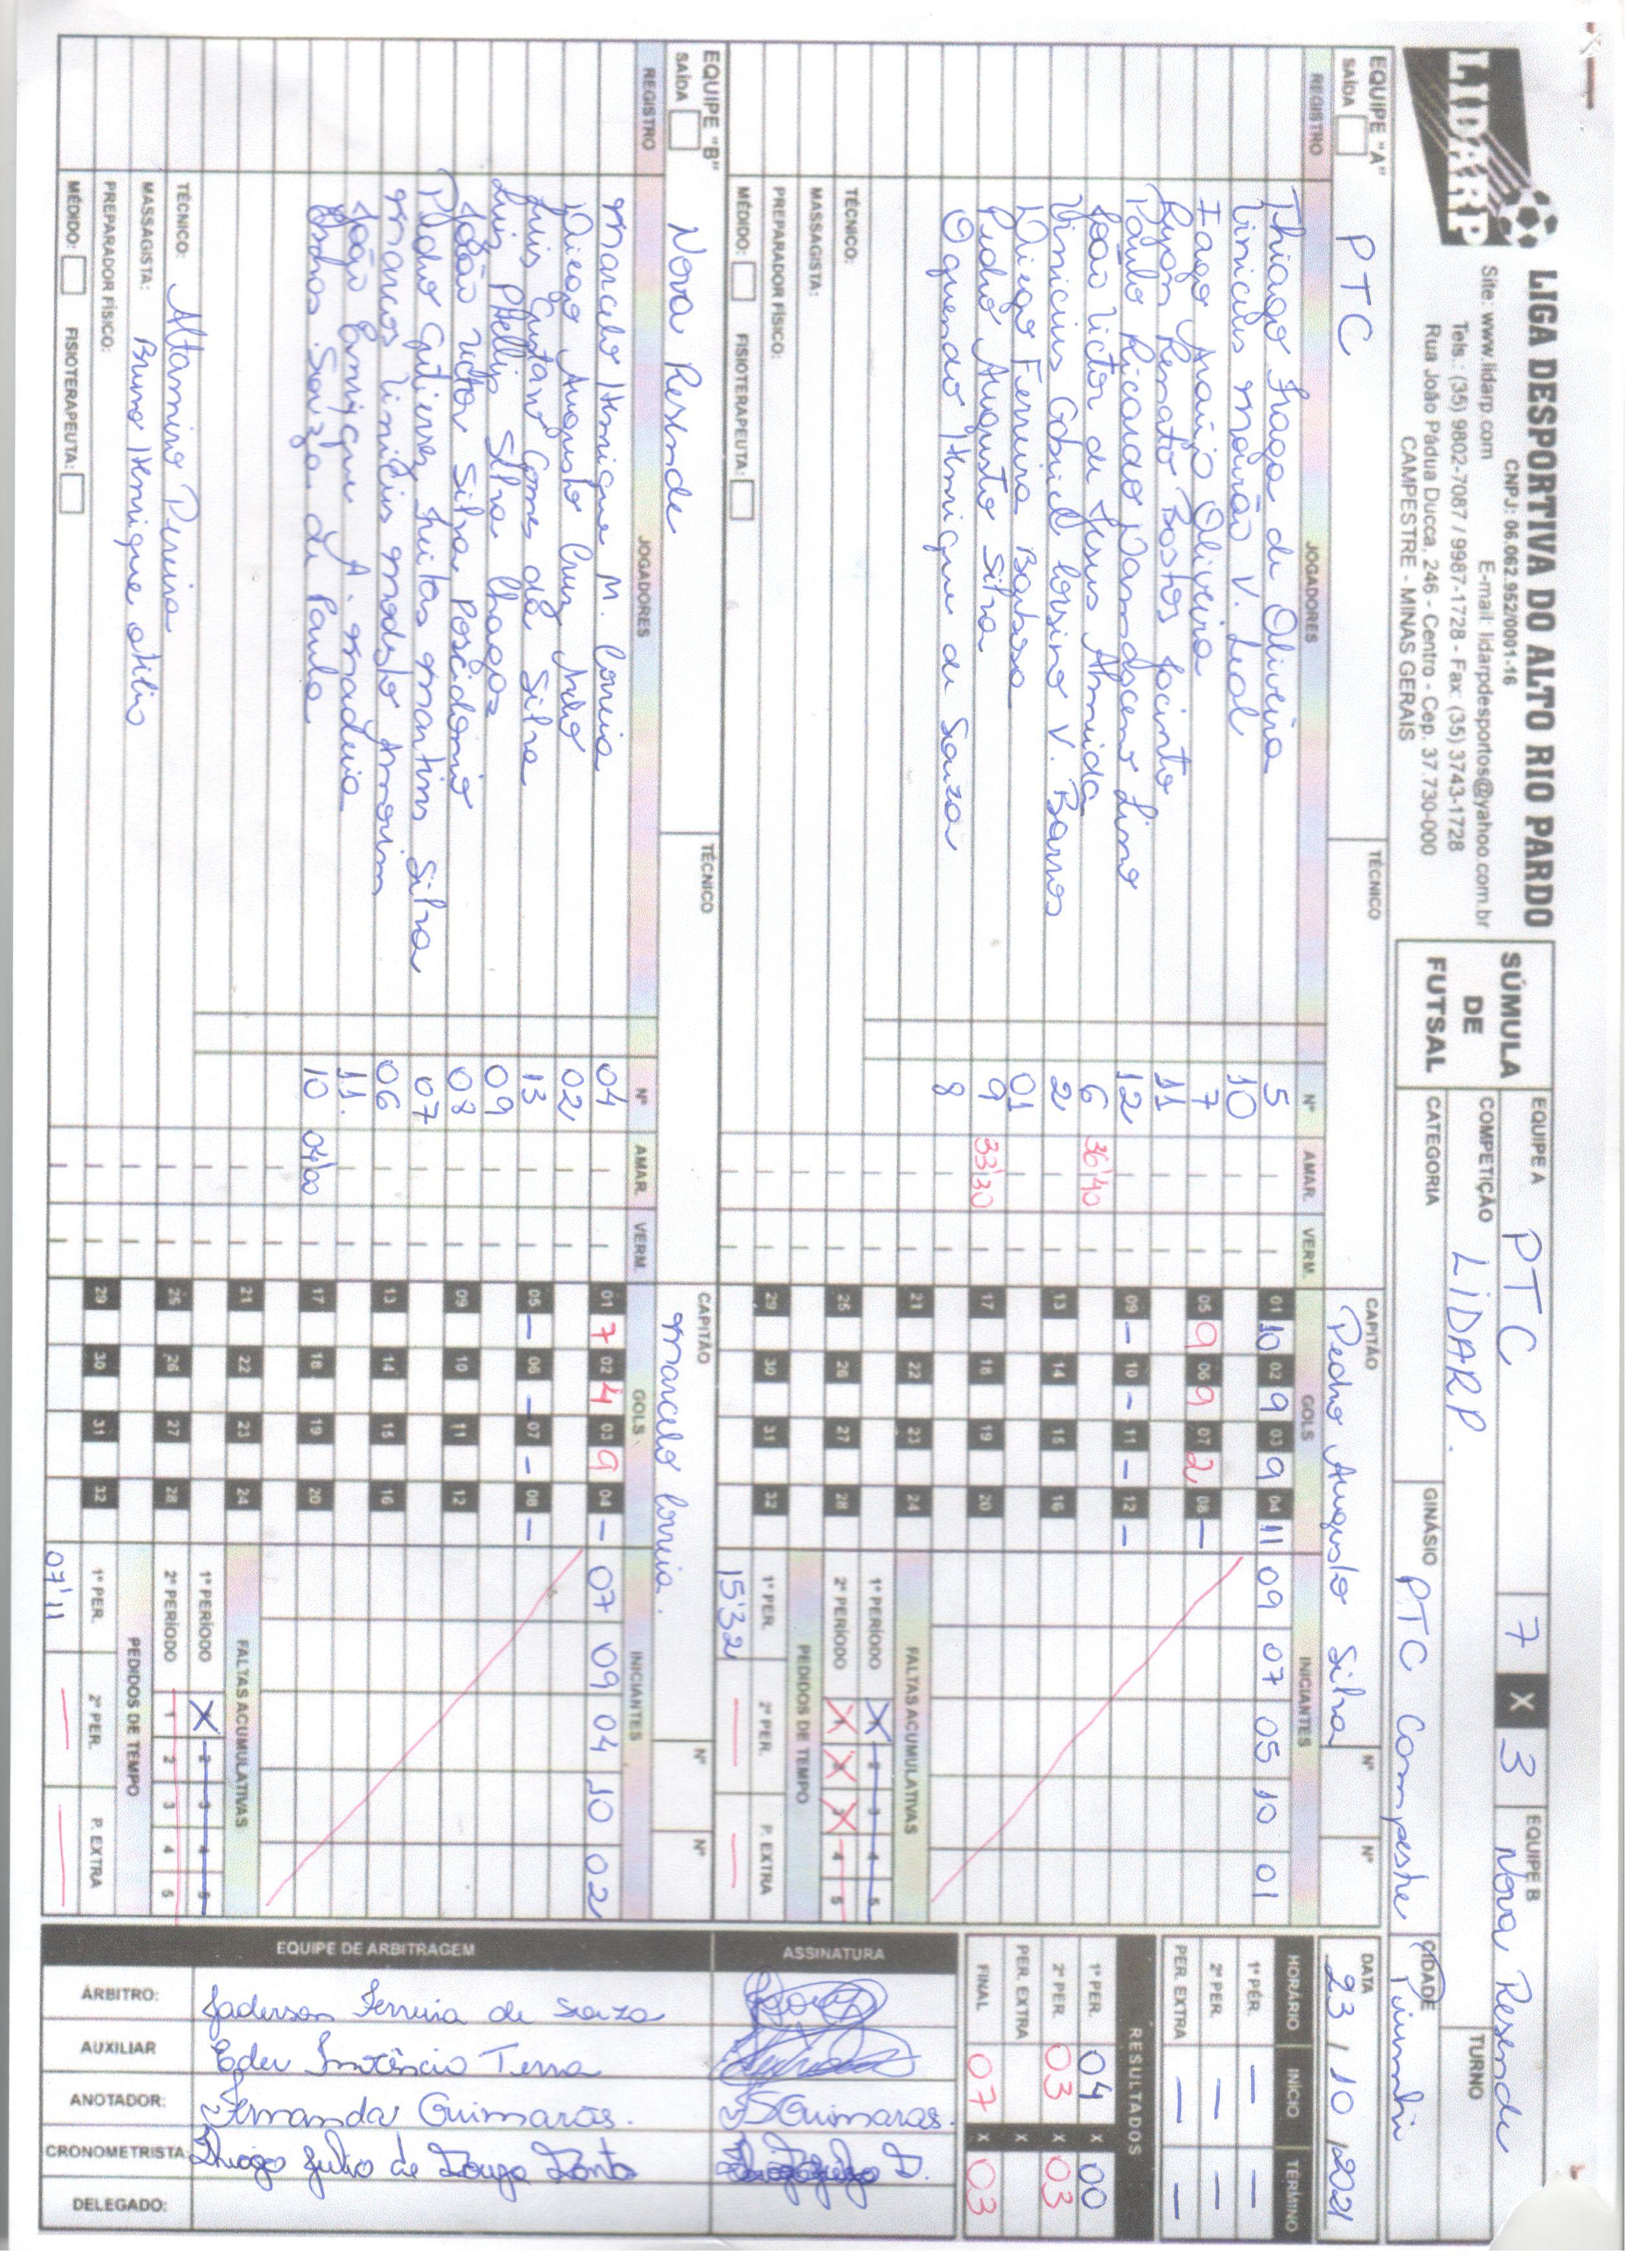 LIDARP
LIGA DESPORTIVA DO ALTO RIO PARDO
CNPJ: 06.062.952/0001-16
Site: www.lidarp.com E-mail: lidarpdesportos@yahoo.com.br
Tels.: (35) 9802-7087 / 9987-1728 - Fax: (35) 3743-1728
Rua João Pádua Ducca, 246 - Centro - Cep. 37.730-000
CAMPESTRE - MINAS GERAIS
SÚMULA DE FUTSAL
EQUIPE A PTC 7 X 3 EQUIPE B Nova Resende
COMPETIÇÃO LIDARP. TURNO
CATEGORIA GINÁSIO PTC Campestre CIDADE Piumhi
EQUIPE "A" PTC TÉCNICO CAPITÃO Pedro Augusto Silva Nº Nº
SAÍDA
REGISTRO JOGADORES Nº AMAR. VERM. GOLS INICIANTES
Thiago Thaga de Oliveira 5 01 10 02 9 03 9 04 11 09 07 05 10 01
Vinicius Mourão V. Leal 10
Iago Araújo Oliveira 7 05 9 06 9 07 2 08 -
Ryan Renato Bastos Jacinto 11
Paulo Ricardo Damasceno Lima 12 09 - 10 - 11 - 12 -
João Victor de Jesus Almeida 6 36'40
Vinicius Gabriel V. Barros 2 13 14 15 16
Diego Ferreira Barbosa 01
Pedro Augusto Silva 9 33'30 17 18 19 20
Oquendo Henrique de Souza 8
21 22 23 24 FALTAS ACUMULATIVAS
1º PERÍODO X 2 3 4 5
TÉCNICO: 25 26 27 28 2º PERÍODO X X X 4 5
MASSAGISTA: PEDIDOS DE TEMPO
PREPARADOR FÍSICO: 29 30 31 32 1º PER. 2º PER. P. EXTRA
MÉDIDO: FISIOTERAPEUTA: 15'32 - -
EQUIPE "B" Nova Resende TÉCNICO CAPITÃO Marcelo Correia. Nº Nº
SAÍDA
REGISTRO JOGADORES Nº AMAR. VERM. GOLS INICIANTES
Marcelo Henrique M. Correia 04 01 7 02 4 03 9 04 - 07 09 04 10 02
Diego Augusto Cruz 02
Luis Gustavo Gomes da Silva 13 05 - 06 - 07 - 08 -
Luis Phellip Silva Chagas 09
João Victor Silva Possidonio 08 09 10 11 12
Pedro Gutierres Freitas Martins Silva 07
Marcos Vinicius Modesto Amorim 06 13 14 15 16
João Henrique A. Madeira 11.
Souza de Paula 10 04'00 17 18 19 20
21 22 23 24 FALTAS ACUMULATIVAS
1º PERÍODO X 2 3 4 5
TÉCNICO: Altamiro Pereira 25 26 27 28 2º PERÍODO 1 2 3 4 5
MASSAGISTA: Bruno Henrique Atilio PEDIDOS DE TEMPO
PREPARADOR FÍSICO: 29 30 31 32 1º PER. 2º PER. P. EXTRA
MÉDIDO: FISIOTERAPEUTA: 07'11 - -
DATA 23/10/2021
HORÁRIO INÍCIO TÉRMINO
1º PER. - -
2º PER. - -
PER. EXTRA - -
RESULTADOS
1º PER. 04 X 00
2º PER. 03 X 03
PER. EXTRA X
FINAL 07 X 03
EQUIPE DE ARBITRAGEM ASSINATURA
ÁRBITRO: Jaderson Ferreira de Souza
AUXILIAR Eder Inotêncio Terra
ANOTADOR: Fernanda Guimarães. Guimaras.
CRONOMETRISTA: Thiago Julio de Souza
DELEGADO: